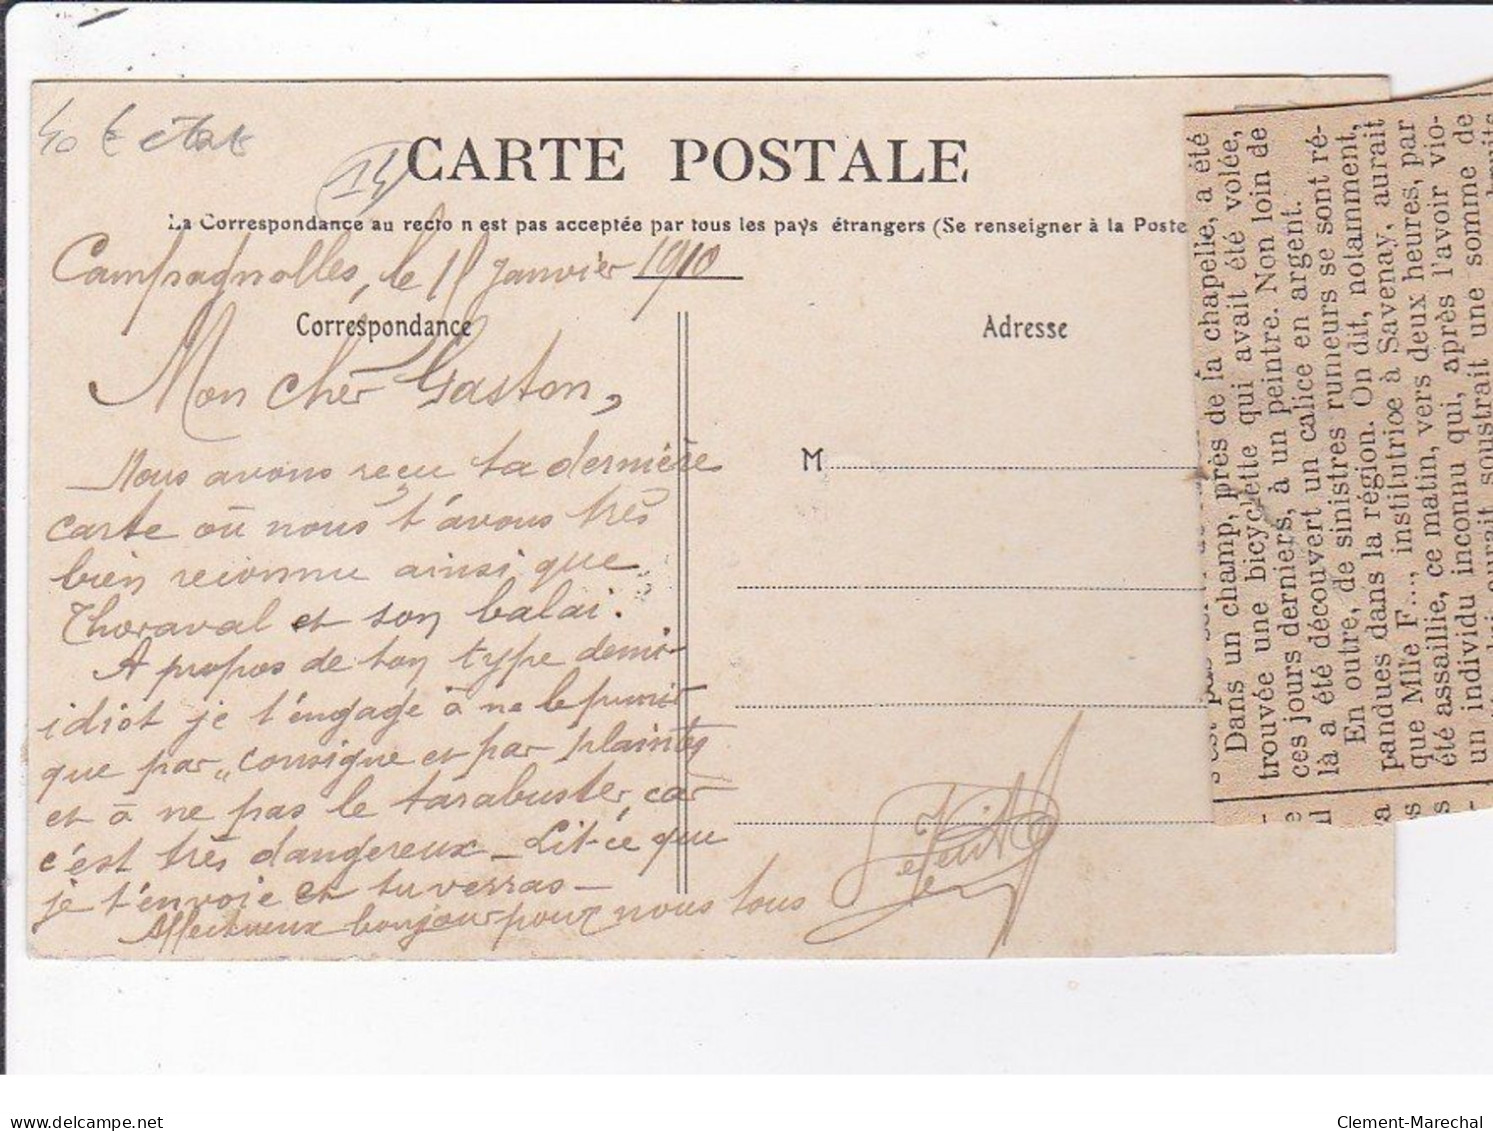 40 €
CARTE POSTALE
La Correspondance au recto n est pas acceptée par tous les pays étrangers (Se renseigner à la Poste
Campagnolles, le 11 Janvier 1910
Correspondance
Adresse
Mon cher Gaston,
Nous avons reçu ta dernière
carte où nous t'avons très
bien reconnu ainsi que
Thoraval et son balai.
A propos de ton type demi-
idiot je t'engage à ne le punir
que par „consigne et par plaintes
et à ne pas le tarabuster, car
c'est très dangereux - Lit-ce que
je t'envoie et tu verras -
Affectueux bonjour pour nous tous
M
Dans un champ, près de la chapelle, a été
trouvée une bicyclette qui avait été volée,
ces jours derniers, à un peintre. Non loin de
là a été découvert un calice en argent.
En outre, de sinistres rumeurs se sont ré-
pandues dans la région. On dit, notamment,
que Mlle F..., institutrice à Savenay, aurait
été assaillie, ce matin, vers deux heures, par
un individu inconnu qui, après l'avoir vio-
aurait soustrait une somme de
delcampe.net
Clement-Marechal